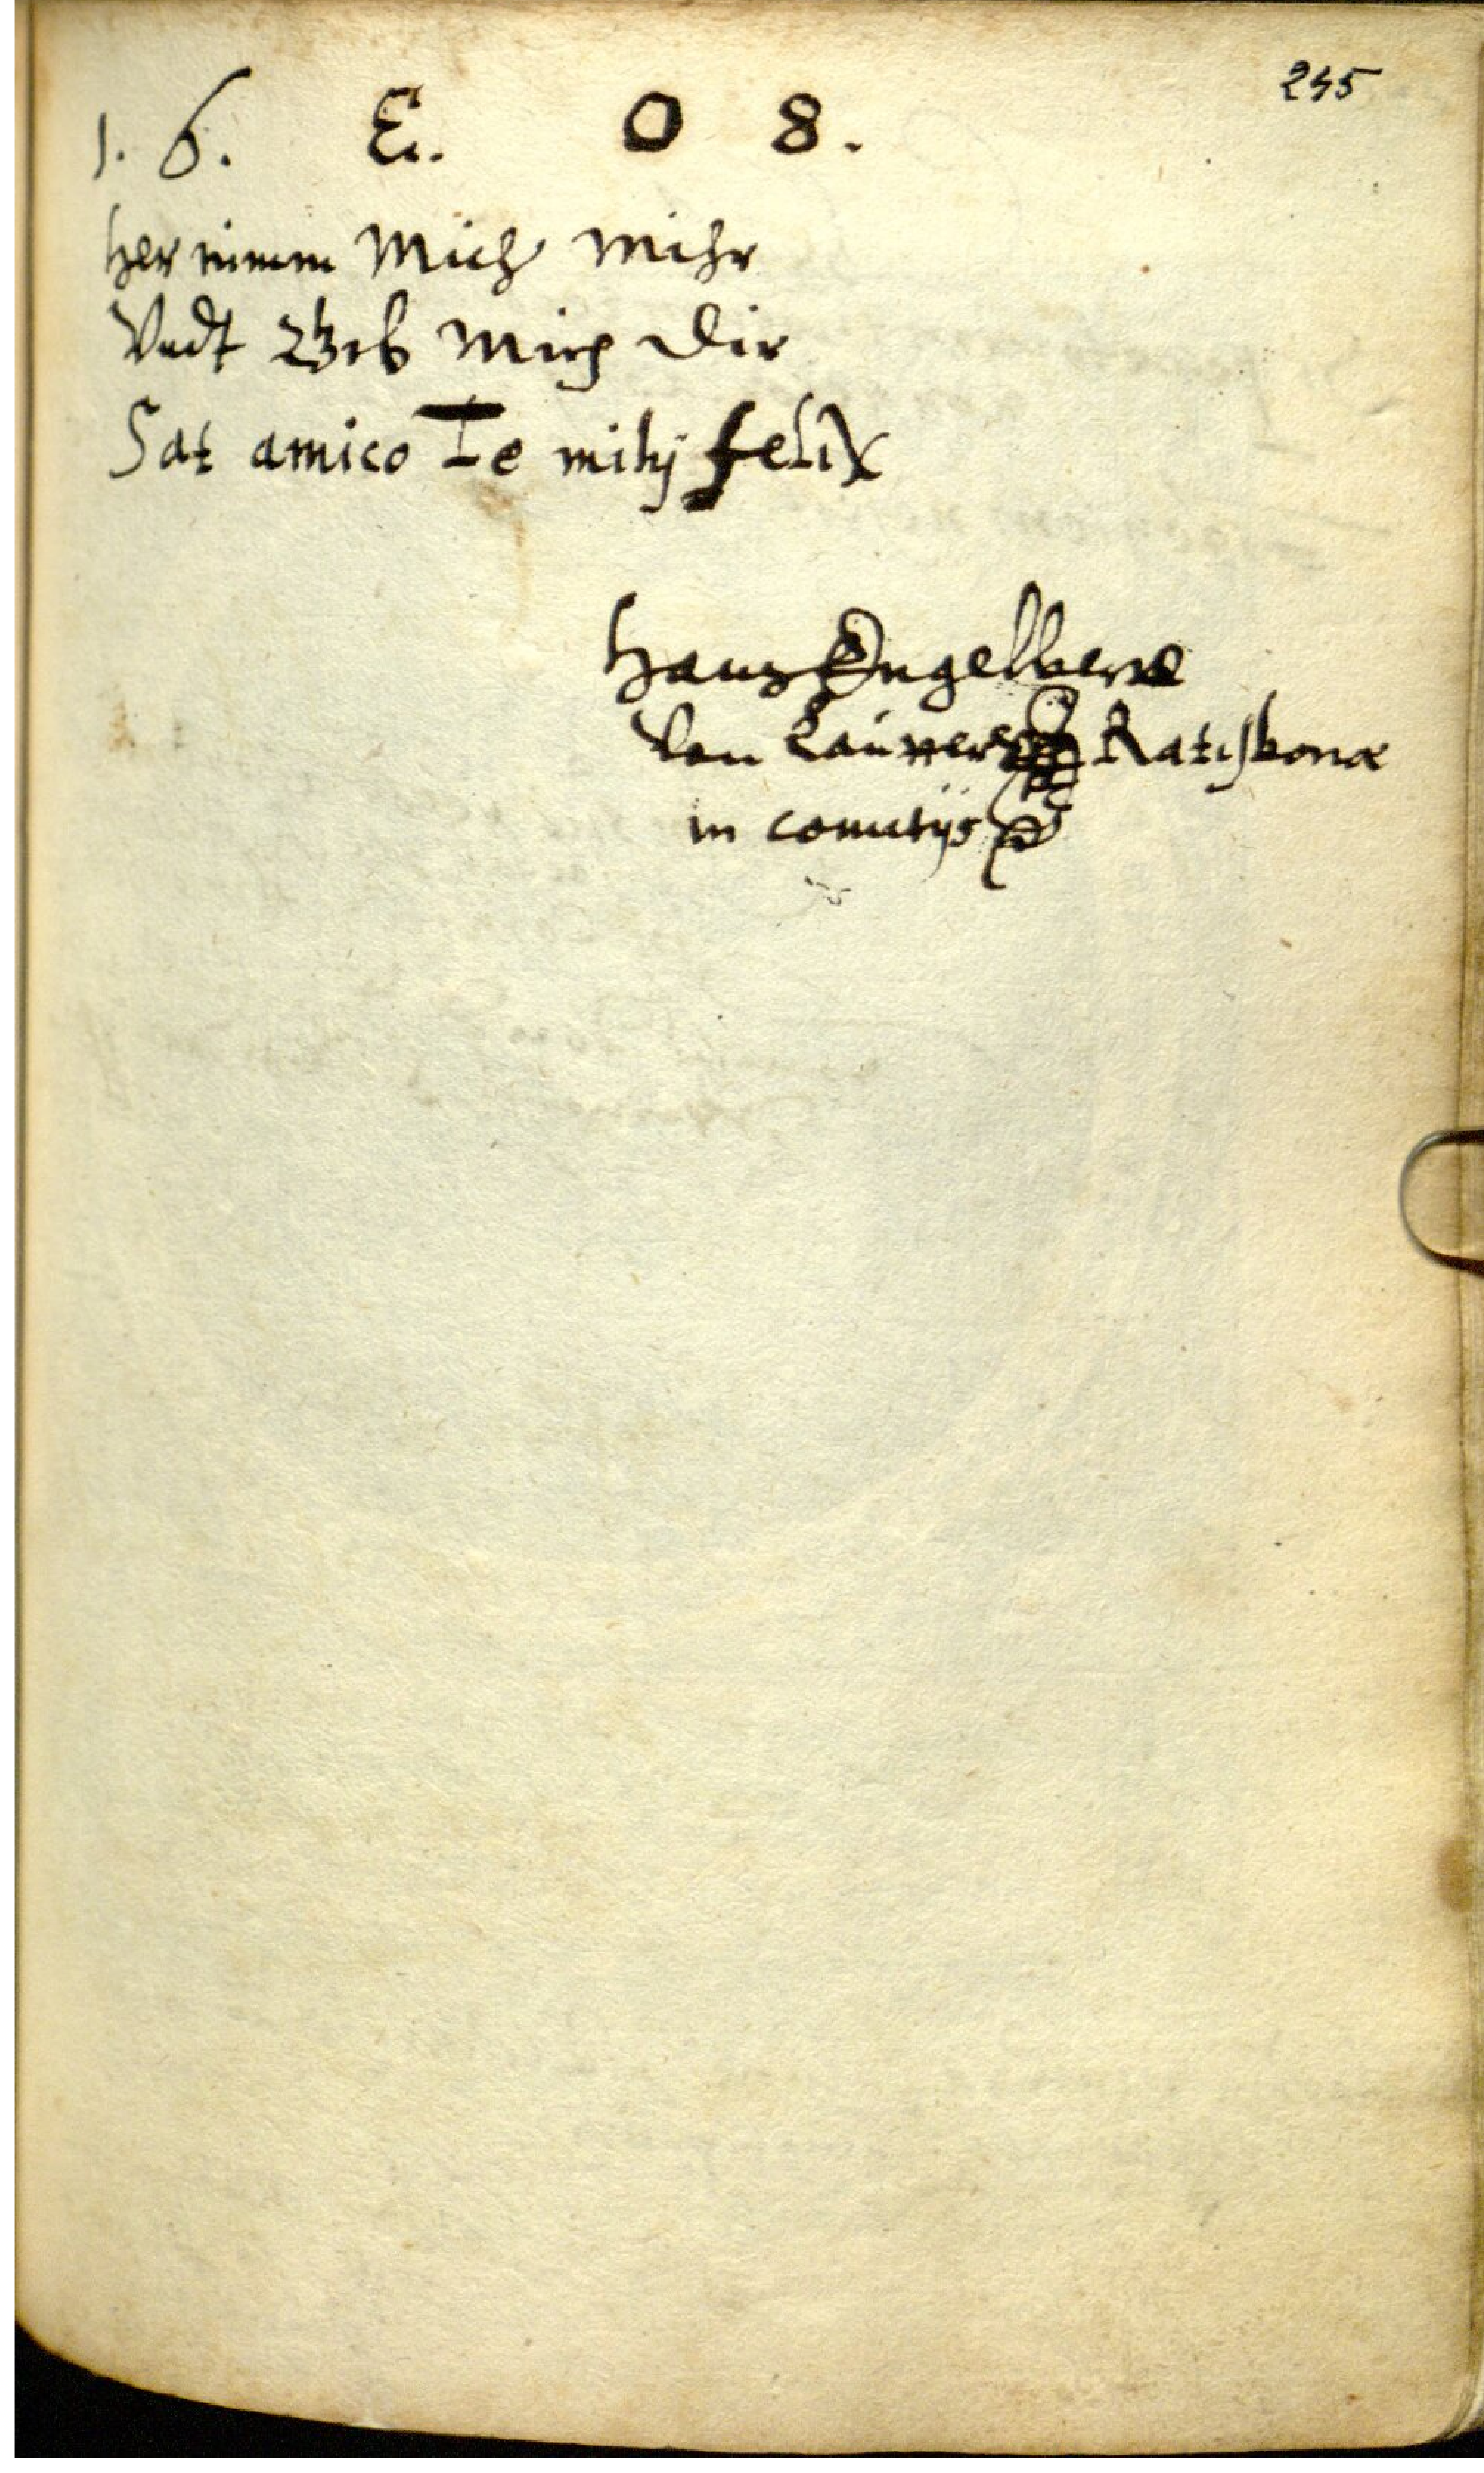 245
1. 6. E. 0 8.
Her nimm Mich Mihr
Vndt Gib Mich Dir
Sat amico Te mihj felix
Hans Engelbert
Von Ratisbonæ
in comitijs